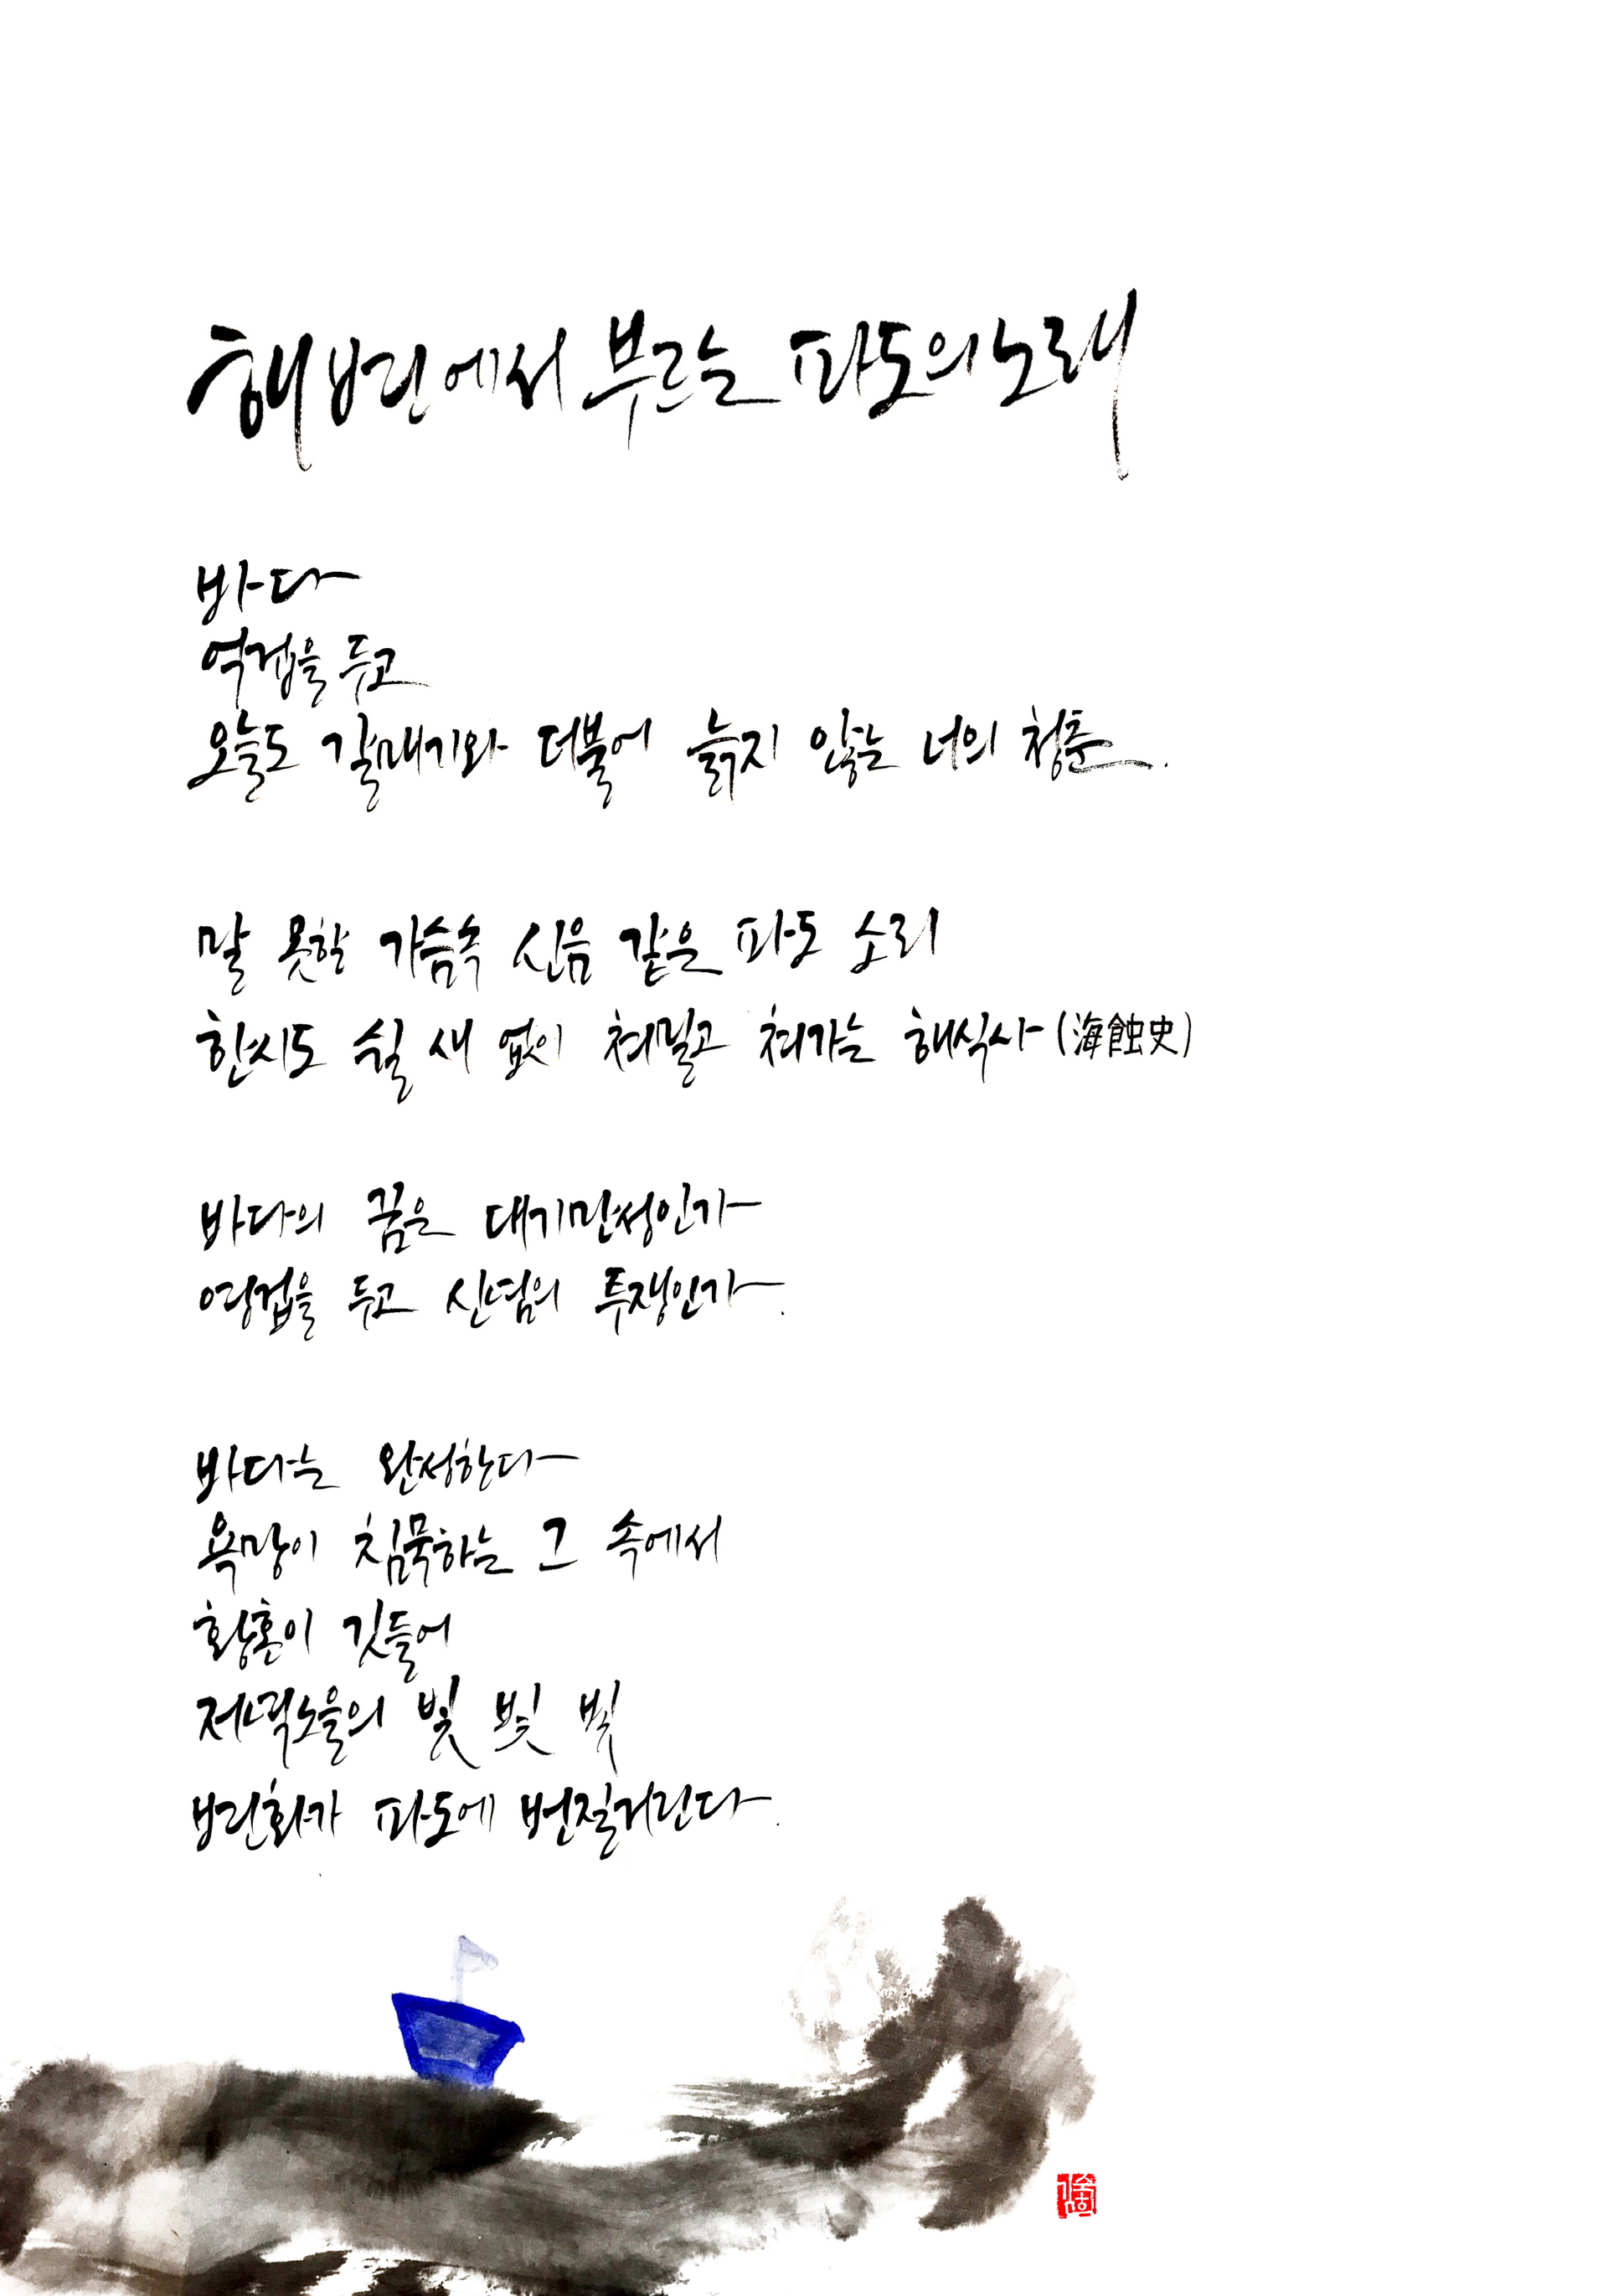 해변에서 부르는 파도의 노래
바다
억겁을 두고
오늘도 갈매기와 더불어 늙지 않는 너의 청춘.
말 못할 가슴속 신음 같은 파도 소리
한시도 쉴 새 없이 쳐밀고 쳐가는 해식사(海蝕史)
바다의 꿈은 대기만성인가
영겁을 두고 신념의 투쟁인가.
바다는 완성한다
욕망이 침묵하는 그 속에서
황혼이 깃들어
저녁노을의 빛 빛 빛
변화가 파도에 번질거린다.